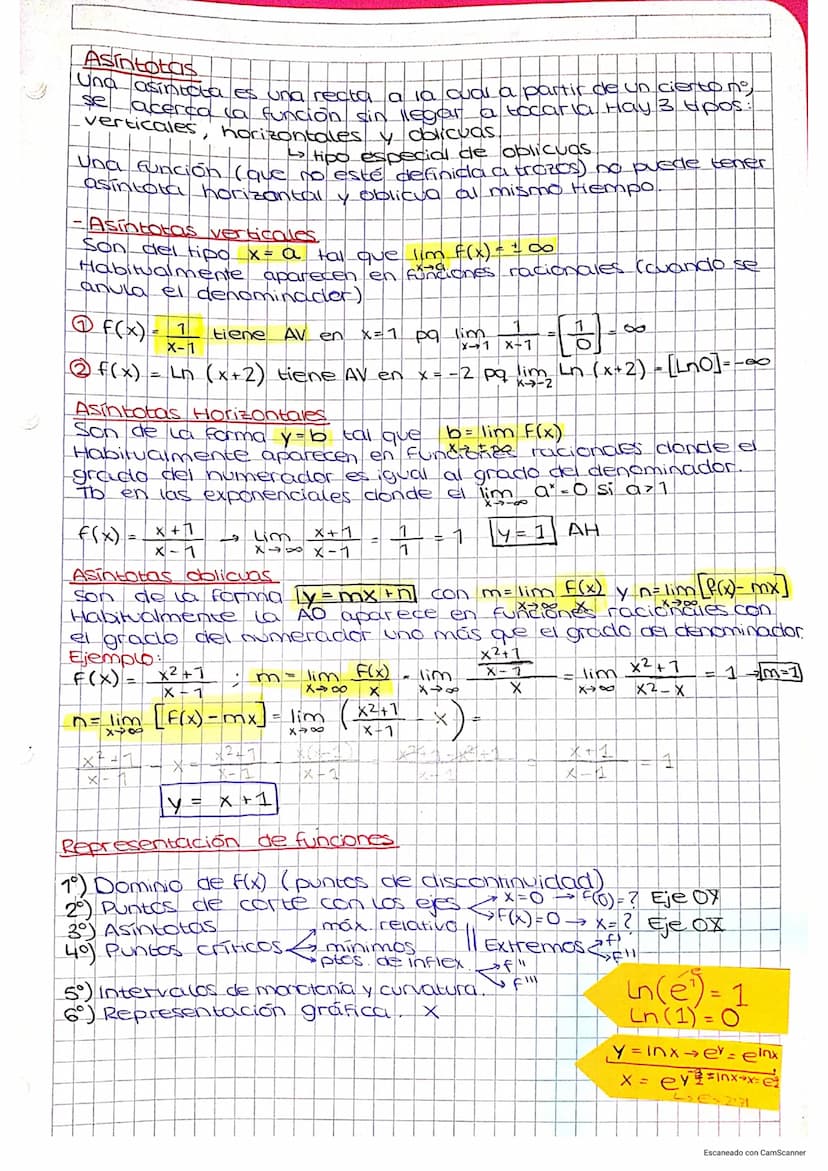 Asíntotas
Una asíntota es una recta a la cual a partir de un cierto nº,
se acerca la función sin llegar a tocarla. Hay 3 tipos:
verticales, horizontales y oblicuas.
↳ tipo especial de oblicuas
Una función (que no esté definida a trozos) no puede tener
asíntota horizontal y oblicua al mismo tiempo.
- Asíntotas verticales
Son del tipo x = a tal que lim x→a f(x) = ± ∞
Habitualmente aparecen en funciones racionales (cuando se
anula el denominador)
① f(x) = 1/(x-1) tiene AV en x=1 pq lim x→1 1/(x-1) = [1/0] = ∞
② f(x) = Ln (x+2) tiene AV en x = -2 pq lim x→-2 Ln (x+2) = [Ln0] = -∞
Asíntotas Horizontales
Son de la forma y=b tal que b = lim x→±∞ f(x)
Habitualmente aparecen en funciones racionales donde el
grado del numerador es igual al grado del denominador.
Tb en las exponenciales donde el lim x→-∞ aˣ = 0 si a>1
f(x) = (x+1)/(x-1) → Lim x→∞ (x+1)/(x-1) = 1/1 = 1 y=1 AH
Asíntotas oblicuas
Son de la forma y=mx+n con m = lim x→∞ f(x)/x y n = lim x→∞ [f(x)-mx]
Habitualmente la AO aparece en funciones racionales con
el grado del numerador uno más que el grado del denominador.
Ejemplo:
f(x) = (x²+1)/(x-1) ; m = lim x→∞ f(x)/x = lim x→∞ ((x²+1)/(x-1))/x = lim x→∞ (x²+1)/(x²-x) = 1 → m=1
n = lim x→∞ [f(x)-mx] = lim x→∞ ((x²+1)/(x-1) - x) =
(x²+1)/(x-1) - x = (x²+1)/(x-1) - x(x-1)/(x-1) = = (x+1)/(x-1) = 1
y = x+1
Representación de funciones
1º) Dominio de f(x) (puntos de discontinuidad)
2º) Puntos de corte con los ejes x=0 → f(0)=? Eje OY
f(x)=0 → x=? Eje OX
3º) Asíntotas
4º) Puntos críticos máx. relativo
mínimos || Extremos f' f''
ptos. de inflex. f'' f'''
5º) Intervalos de monotonía y curvatura.
6º) Representación gráfica. x
Ln(e¹) = 1
Ln(1) = 0
y = lnx → eʸ = e^lnx
x = eʸ
Escaneado con CamScanner